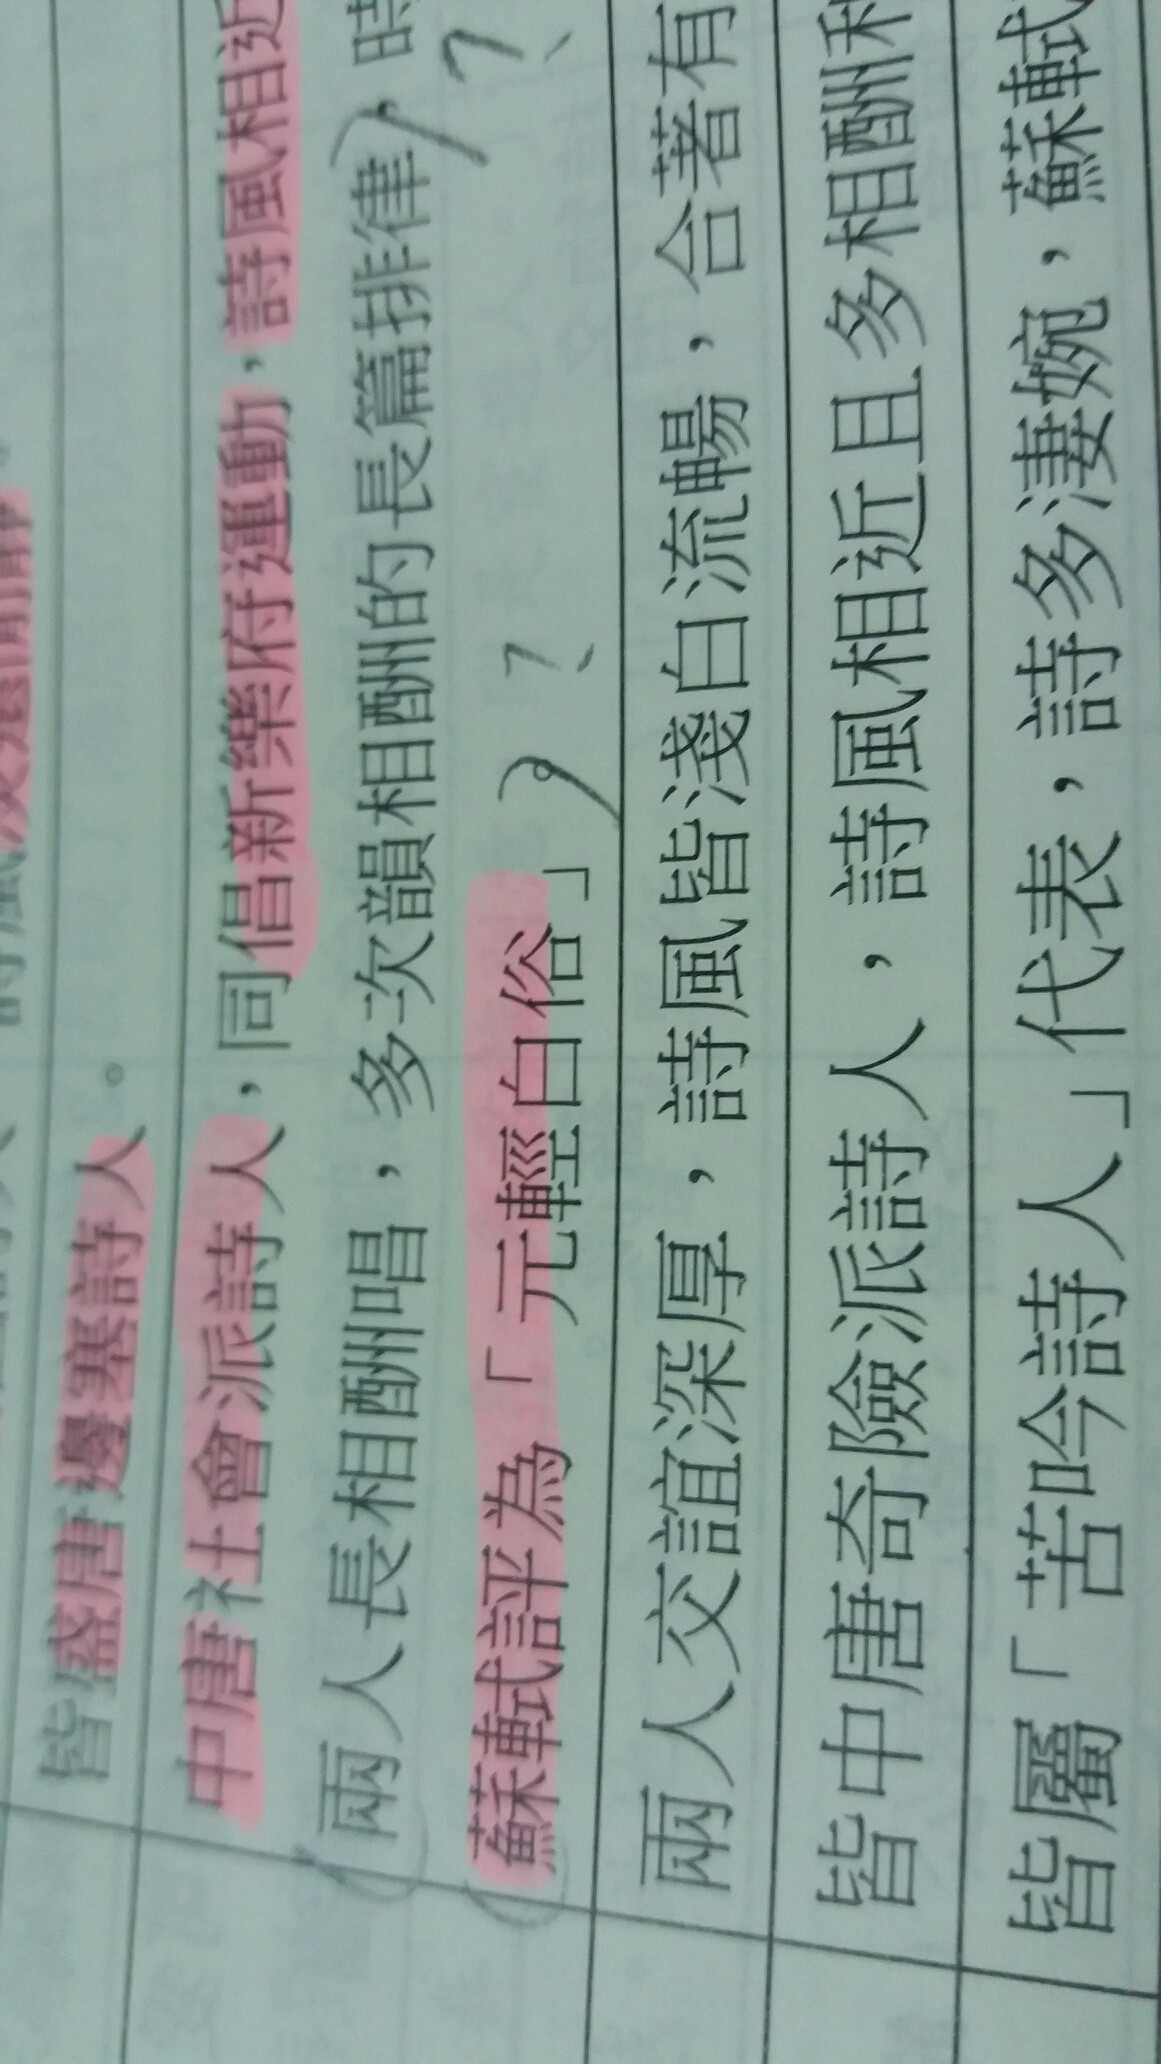 皆盛唐邊塞詩人。
中唐社會派詩人，同倡新樂府運動，詩風相近
兩人長相酬唱，多次韻相酬的長篇排律，時
蘇軾評為「元輕白俗」。
兩人交誼深厚，詩風皆淺白流暢，合著有
皆中唐奇險派詩人，詩風相近且多相酬和
皆屬「苦吟詩人」代表，詩多淒婉，蘇軾